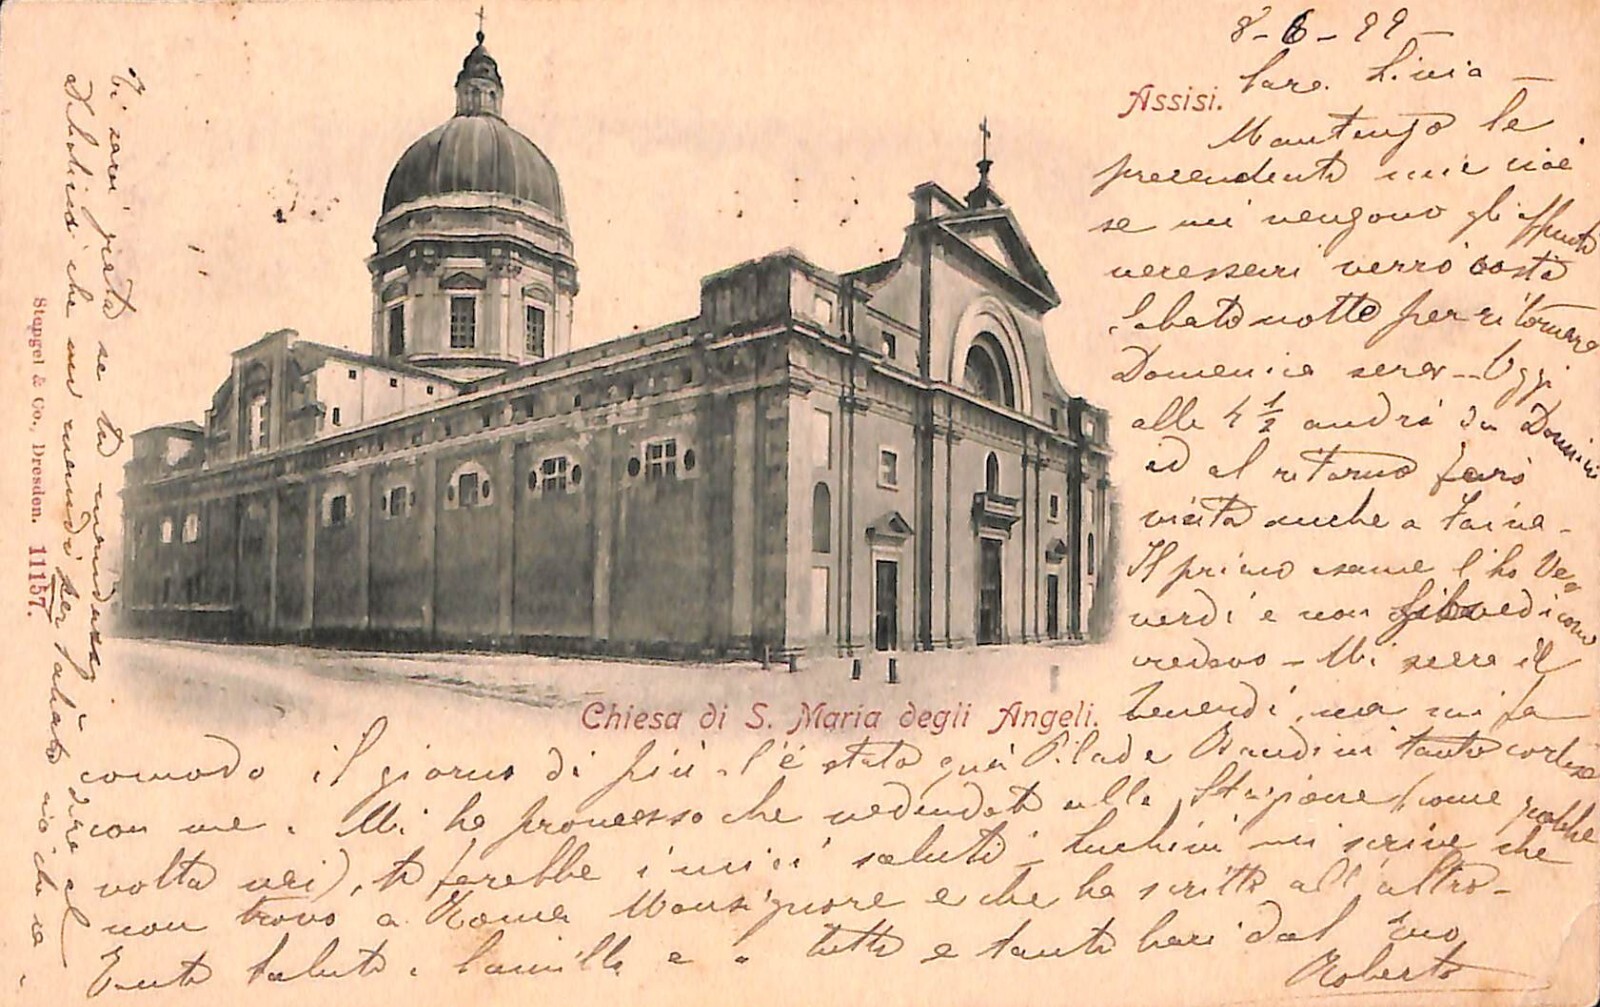 8-6-99-
Assisi.
Cara Livia -
Mantengo le
precedenti mie cioè
se mi vengono gli
necessari verrò costà
Sabato notte per ritornare
Domenica sera - Oggi
alle 4 1/2 andrò da
ed al ritorno farò
visita anche a
Il primo esame l'ho
verdì e non
credevo - Mi secca il
Venerdì, ma mi fa
Chiesa di S. Maria degli Angeli.
comodo il giorno di più - C'è stato qui Pilade tanto cortese
con me. Mi ha promesso che vedendoti alla Stazione (come qualche
volta vai), ti farebbe i miei saluti - Luchini mi scrive che
non trovò a Roma Monsignore e che ha scritto all'altro -
Tanti saluti a Camilla e a tutti e tanti baci dal tuo
Roberto
Ti sarei grato se tu mandassi a dire al
che mi mandi per Sabato ciò che sa.
Stengel & Co., Dresden. 11157.